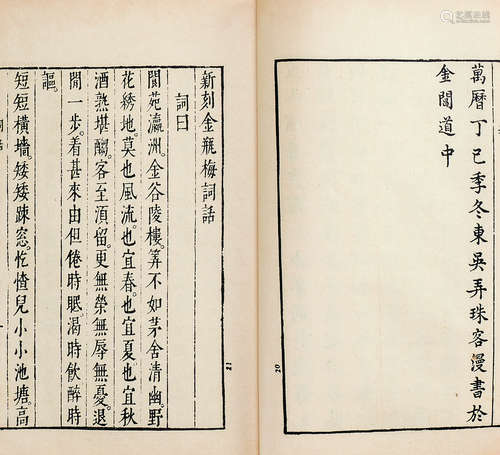 萬曆丁巳季冬東吳弄珠客漫書於
金閶道中
20
新刻金瓶梅詞話
詞曰
閬苑瀛洲。金谷陵樓。筭不如茅舍清幽。野
花綉地。莫也風流。也宜春。也宜夏。也宜秋
酒熟堪釃。客至湏留。更無榮無辱無憂。退
閒一步。着甚來由。但倦時眠。渴時飲。醉時
謳。
短短橫墻。矮矮踈窓。忔㤞兒小小池塘。高
21